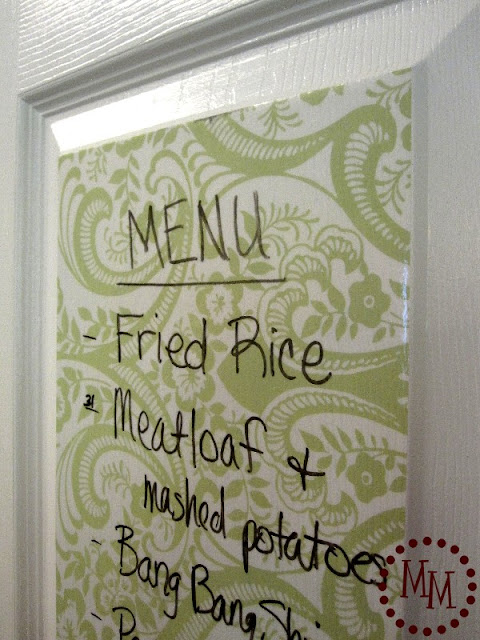 MENU
- Fried Rice
- Meatloaf &
mashed potatoes
- Bang Bang
MM